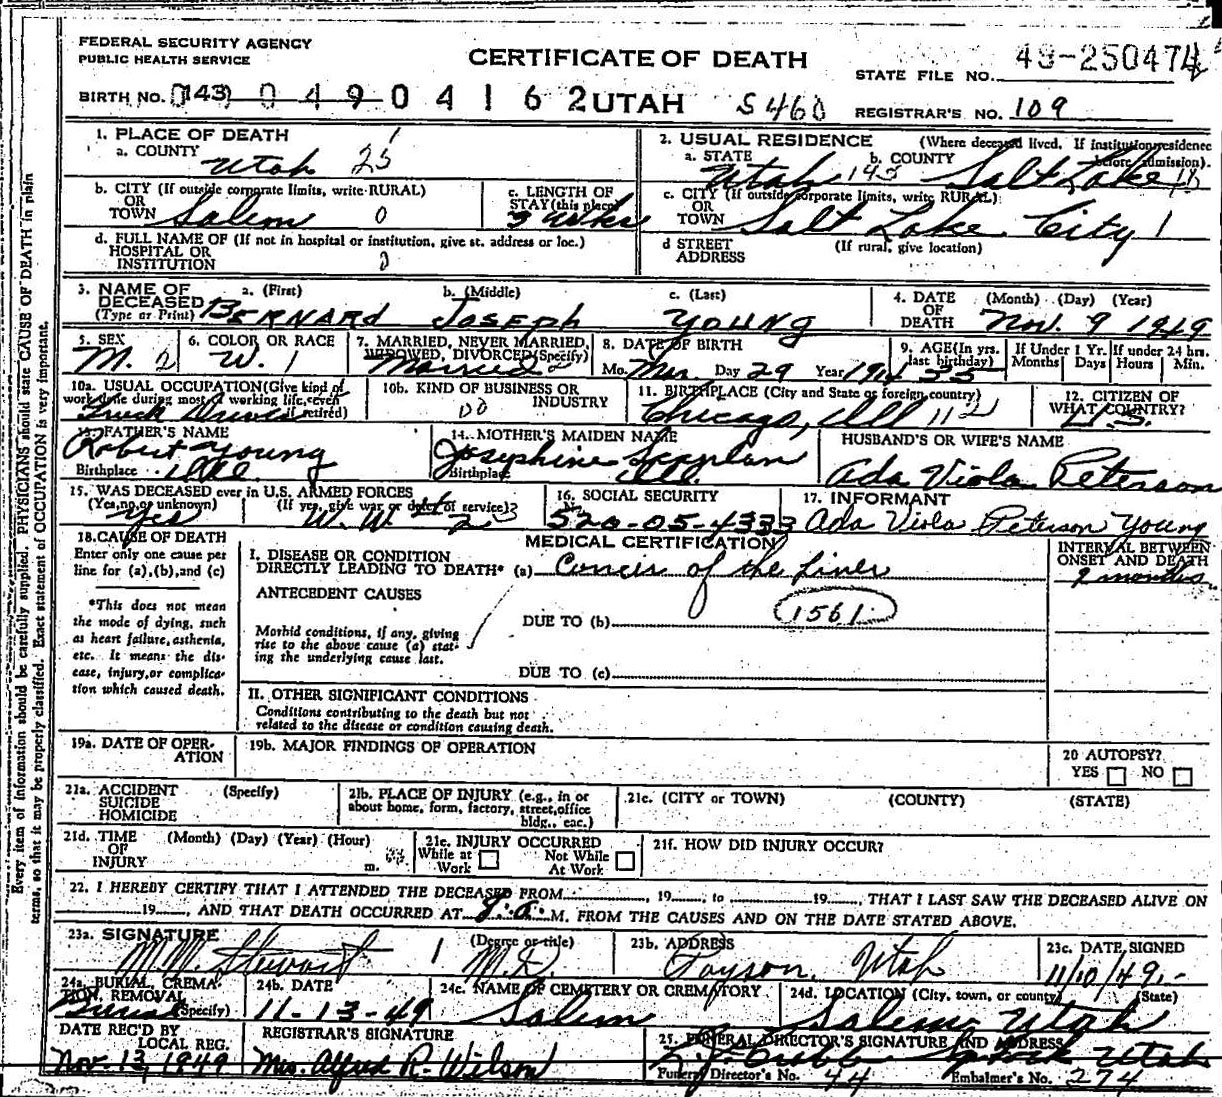 FEDERAL SECURITY AGENCY
PUBLIC HEALTH SERVICE
CERTIFICATE OF DEATH
STATE FILE NO. 49-250474
BIRTH NO. 143 0 4 9 0 4 1 6 2 UTAH S460 REGISTRAR'S NO. 109
1. PLACE OF DEATH
a. COUNTY Utah 25
2. USUAL RESIDENCE (Where deceased lived. If institution; residence before admission).
a. STATE Utah 143 b. COUNTY Salt Lake 18
b. CITY (If outside corporate limits, write RURAL) OR TOWN Salem 0
c. LENGTH OF STAY (this place) 3 Wks
c. CITY (If outside corporate limits, write RURAL) OR TOWN Salt Lake City 1
d. FULL NAME OF (If not in hospital or institution, give st. address or loc.) HOSPITAL OR INSTITUTION 0
d STREET ADDRESS (If rural, give location)
3. NAME OF DECEASED (Type or Print) a. (First) b. (Middle) c. (Last)
BERNARD JOSEPH YOUNG
4. DATE OF DEATH (Month) (Day) (Year)
Nov. 9 1949
5. SEX M. 2
6. COLOR OR RACE W. 1
7. MARRIED, NEVER MARRIED, WIDOWED, DIVORCED (Specify) Married 2
8. DATE OF BIRTH Mo. Mar. Day 29 Year
9. AGE (In yrs. last birthday) 55
If Under 1 Yr. Months Days
If under 24 hrs. Hours Min.
10a. USUAL OCCUPATION (Give kind of work done during most of working life, even if retired) Truck Driver
10b. KIND OF BUSINESS OR INDUSTRY
11. BIRTHPLACE (City and State or foreign country) Chicago, Ill
12. CITIZEN OF WHAT COUNTRY? U.S.
13. FATHER'S NAME Robert Young
Birthplace Ill.
14. MOTHER'S MAIDEN NAME Josephine Scanlan
Birthplace Ill.
HUSBAND'S OR WIFE'S NAME
Ada Viola Peterson
15. WAS DECEASED ever in U.S. ARMED FORCES
(Yes, no, or unknown) (If yes, give war or dates of service)?
Yes W. W.
16. SOCIAL SECURITY
520-05-4333
17. INFORMANT
Ada Viola Peterson Young
18. CAUSE OF DEATH
Enter only one cause per line for (a), (b), and (c)
*This does not mean the mode of dying, such as heart failure, asthenia, etc. It means the disease, injury, or complication which caused death.
MEDICAL CERTIFICATION
I. DISEASE OR CONDITION DIRECTLY LEADING TO DEATH* (a) Cancer of the Liver
INTERVAL BETWEEN ONSET AND DEATH
9 months
ANTECEDENT CAUSES
Morbid conditions, if any, giving rise to the above cause (a) stating the underlying cause last.
DUE TO (b) 1561
DUE TO (c)
II. OTHER SIGNIFICANT CONDITIONS
Conditions contributing to the death but not related to the disease or condition causing death.
19a. DATE OF OPERATION
19b. MAJOR FINDINGS OF OPERATION
20 AUTOPSY?
YES NO
21a. ACCIDENT SUICIDE HOMICIDE (Specify)
21b. PLACE OF INJURY (e.g., in or about home, form, factory, street, office bldg., eac.)
21c. (CITY or TOWN) (COUNTY) (STATE)
21d. TIME OF INJURY (Month) (Day) (Year) (Hour) m.
21e. INJURY OCCURRED
While at Work Not While At Work
21f. HOW DID INJURY OCCUR?
22. I HEREBY CERTIFY THAT I ATTENDED THE DECEASED FROM , 19 , to 19 , THAT I LAST SAW THE DECEASED ALIVE ON
19 , AND THAT DEATH OCCURRED AT a. M. FROM THE CAUSES AND ON THE DATE STATED ABOVE.
23a. SIGNATURE (Degree or title)
M.M. Stewart 1 M.D.
23b. ADDRESS
Payson, Utah
23c. DATE SIGNED
11/10/49
24a. BURIAL, CREMATION, REMOVAL (Specify) Burial
24b. DATE
11-13-49
24c. NAME OF CEMETERY OR CREMATORY
Salem
24d. LOCATION (City, town, or county) (State)
Salem Utah
DATE REC'D BY LOCAL REG.
Nov. 13, 1949
REGISTRAR'S SIGNATURE
Mrs. Alfred R. Wilson
25. FUNERAL DIRECTOR'S SIGNATURE AND ADDRESS
Utah
Funeral Director's No. 44 Embalmer's No. 274
Every item of information should be carefully supplied. PHYSICIANS should state CAUSE OF DEATH in plain
terms, so that it may be properly classified. Exact statement of OCCUPATION is very important.